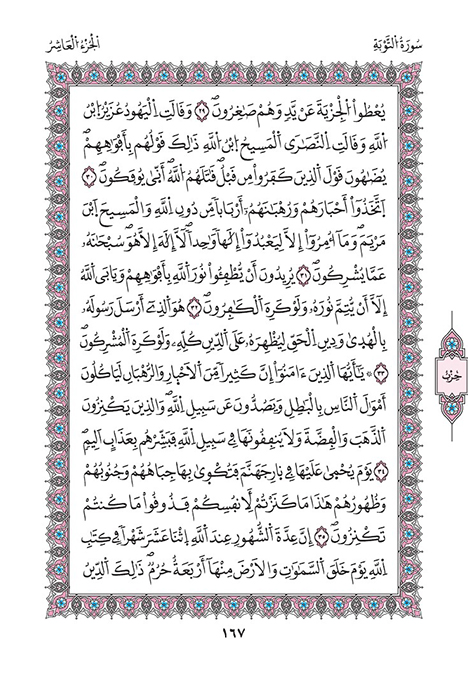 سُورَةُ التَّوْبَةِ
الجُزْءُ العَاشِرُ
يُعْطُواْ الْجِزْيَةَ عَنْ يَّدٍ وَهُمْ صَٰغِرُونَ ٢٩ وَقَالَتِ الْيَهُودُ عُزَيْرُ ابْنُ
اللَّهِ وَقَالَتِ النَّصَٰرَى الْمَسِيحُ ابْنُ اللَّهِ ذَٰلِكَ قَوْلُهُم بِأَفْوَٰهِهِمْ
يُضَٰهُونَ قَوْلَ الَّذِينَ كَفَرُواْ مِن قَبْلُ قَٰتَلَهُمُ اللَّهُ أَنَّىٰ يُوفَكُونَ ٣٠
اَتَّخَذُوٓاْ أَحْبَارَهُمْ وَرُهْبَٰنَهُمُۥٓ أَرْبَابًا مِّن دُونِ اللَّهِ وَالْمَسِيحَ اَبْنَ
مَرْيَمَ وَمَآ أُمِرُوٓاْ إِلَّا لِيَعْبُدُوٓاْ إِلَٰهًا وَٰحِدًا لَّآ إِلَٰهَ إِلَّا هُوَ سُبْحَٰنَهُۥ
عَمَّا يُشْرِكُونَ ٣١ يُرِيدُونَ أَنْ يُّطْفِـُٔواْ نُورَ اللَّهِ بِأَفْوَٰهِهِمْ وَيَابَى اللَّهُ
إِلَّآ أَنْ يُّتِمَّ نُورَهُۥ وَلَوْ كَرِهَ الْكَٰفِرُونَ ٣٢ هُوَ الَّذِےٓ أَرْسَلَ رَسُولَهُۥ
بِالْهُدَىٰ وَدِينِ الْحَقِّ لِيُظْهِرَهُۥ عَلَى الدِّينِ كُلِّهِۦ وَلَوْ كَرِهَ الْمُشْرِكُونَ
٣٣ يَٰٓأَيُّهَا الَّذِينَ ءَامَنُوٓاْ إِنَّ كَثِيرًا مِّنَ الْأَحْبَارِ وَالرُّهْبَانِ لَيَاكُلُونَ
حزب
أَمْوَٰلَ النَّاسِ بِالْبَٰطِلِ وَيَصُدُّونَ عَن سَبِيلِ اللَّهِ وَالَّذِينَ يَكْنِزُونَ
الذَّهَبَ وَالْفِضَّةَ وَلَا يُنفِقُونَهَا فِے سَبِيلِ اللَّهِ فَبَشِّرْهُم بِعَذَابٍ اَلِيمٍ
٣٤ يَوْمَ يُحْمَىٰ عَلَيْهَا فِے نَارِ جَهَنَّمَ فَتُكْوَىٰ بِهَا جِبَاهُهُمْ وَجُنُوبُهُمْ
وَظُهُورُهُمْ هَٰذَا مَا كَنَزْتُمْ لِأَنفُسِكُمْ فَذُوقُواْ مَا كُنتُمْ
تَكْنِزُونَ ٣٥ إِنَّ عِدَّةَ الشُّهُورِ عِندَ اللَّهِ اِثْنَا عَشَرَ شَهْرًا فِے كِتَٰبِ
اللَّهِ يَوْمَ خَلَقَ السَّمَٰوَٰتِ وَالْأَرْضَ مِنْهَآ أَرْبَعَةٌ حُرُمٌ ذَٰلِكَ الدِّينُ
١٦٧